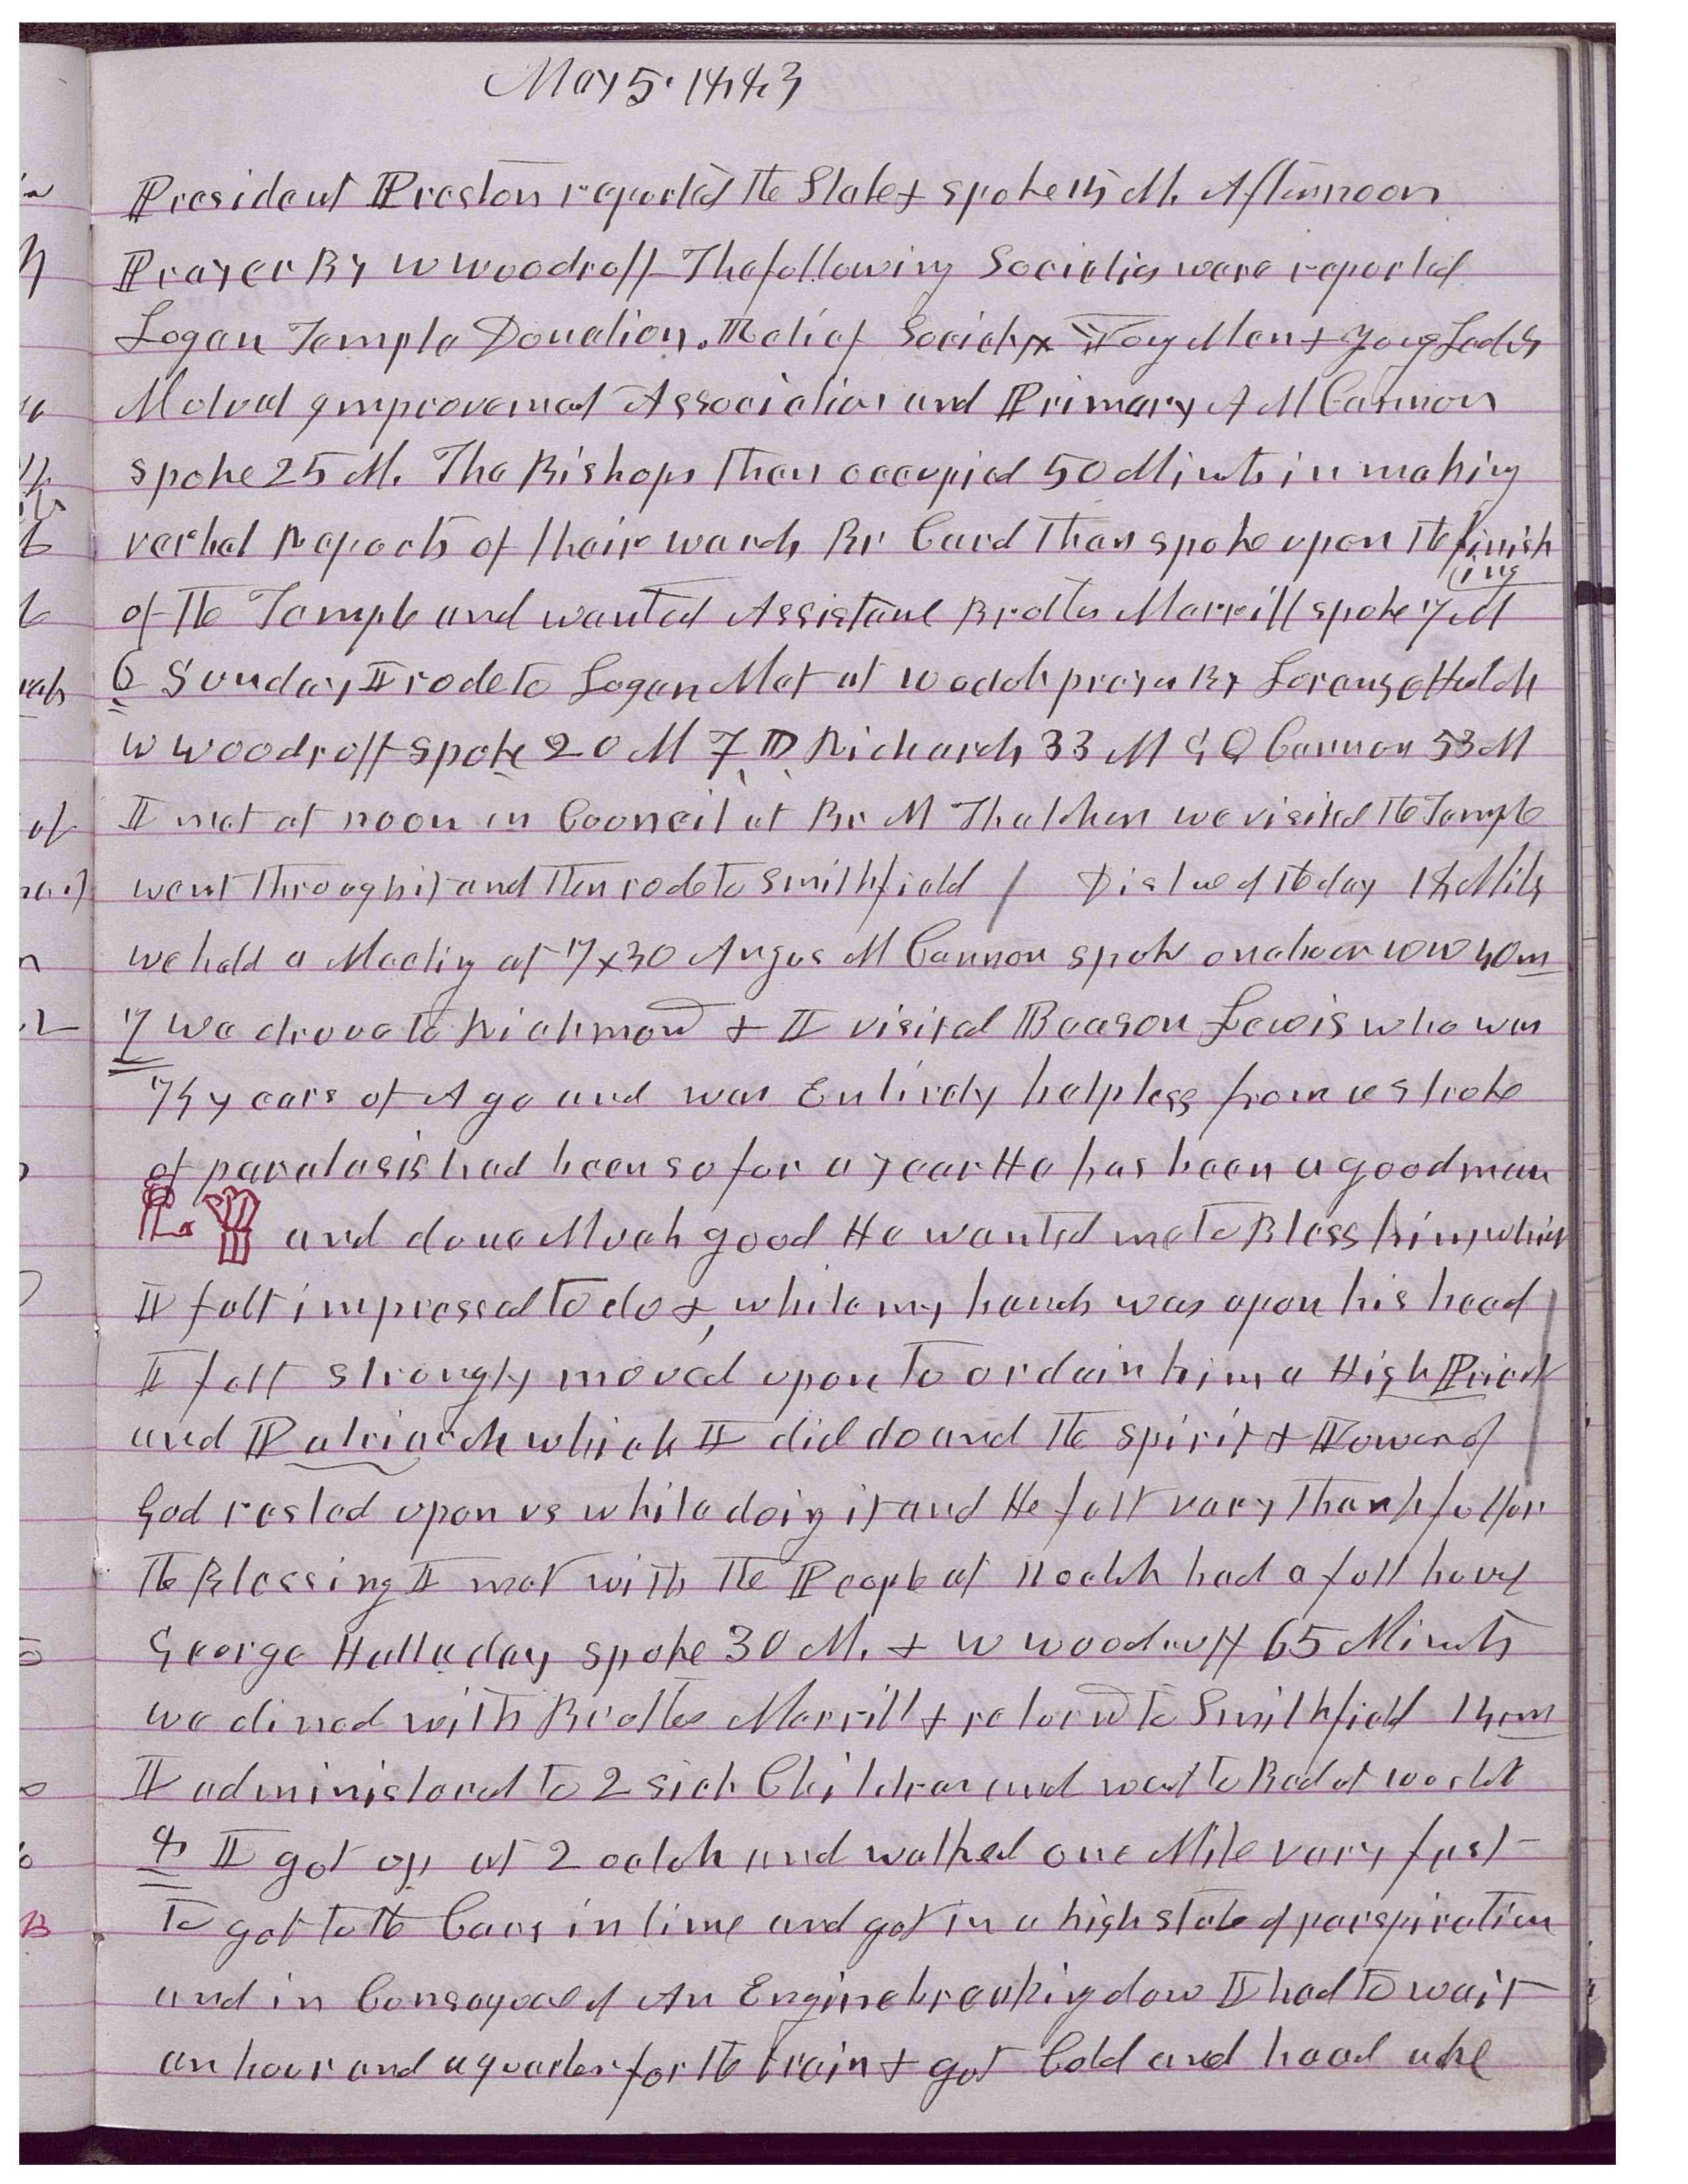 May 5. 1883
President Preston reported the Stake & spoke 15 M. Afternoon
Prayer By W Woodruff The following Societies were reported
Logan Temple Donation. Relief Society Young Men & Young Ladies
Mutual Improvement Association and Primary A M Cannon
spoke 25 M. The Bishops then occupied 50 Minuts in making
verbal Reports of thair wards Br Card Then spoke upon the finish
ing
of the Temple and wanted Assistance Brother Merrill spoke 7 M
6 Sunday I rode to Logan Met at 10 oclok prayer By Lorenzo Hatch
W Woodruff spoke 20 M F D Richards 33 M G Q Cannon 53 M
I met at noon in Council at Br M Thatchers we visited the Temple
went through it and then rode to Smithfield / Distance of the day 18 Miles
we held a Meeting at 7x30 Angus M Cannon spoke one hour W W 40 m
7 We drove to Richmond & I visited Beason Lewis who was
74 years of Age and was Entirely helpless from a stroke
of paralasis had been so for a year He has been a good man
and done Much good He wanted me to Bless him, which
I felt impressed to do &, while my hands was upon his head
I felt strongly moved upon to ordain him a High Priest
and Patriarch which I did do and the spirit & Power of
God rested upon us while doing it and He felt very Thankful for
the Blessing I met with the People at 11 oclok had a full house
George Halladay spoke 30 M. & W Woodruff 65 Minuts
we dined with Brother Merrill & returnd to Smithfield 14 m
I administered to 2 sick Children and went to Bed at 10 oclok
8 I got up at 2 oclok and walked one Mile very fast
to get to the Cars in time and got in a high state of perspiration
and in Consequence of An Engine breaking down I had to wait
an hour and a quarter for the train & got Cold and head ake